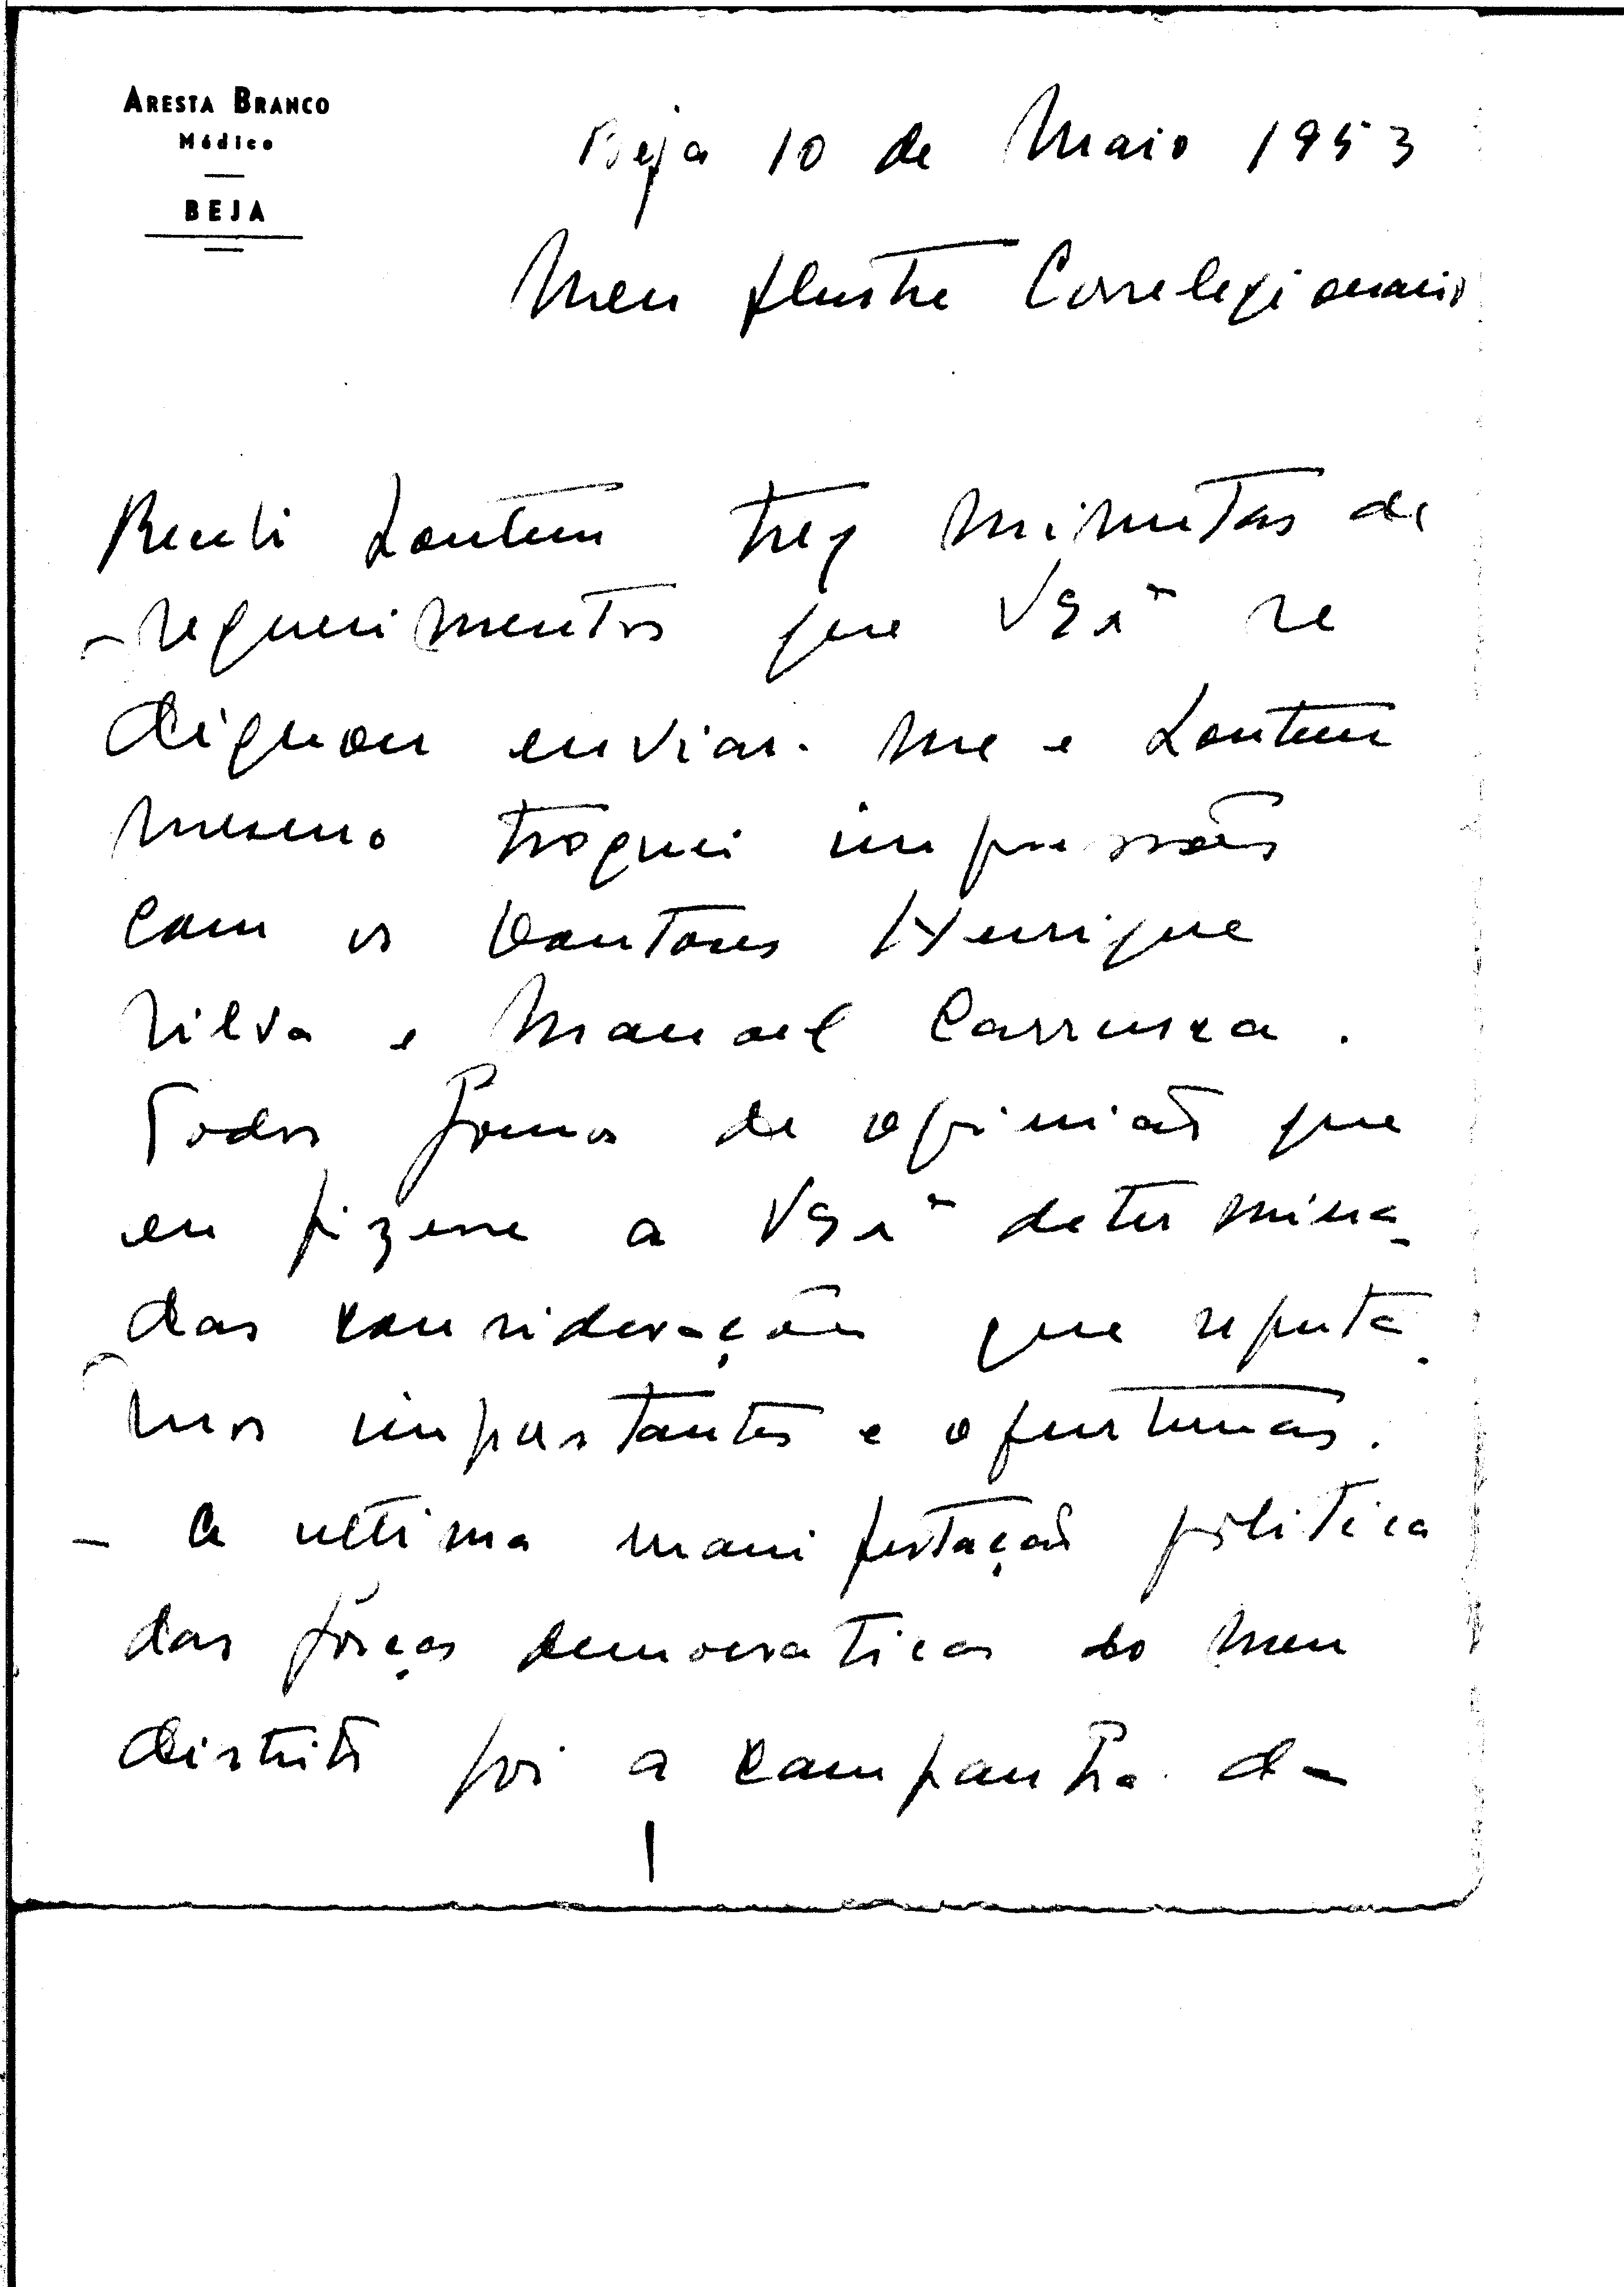 ARESTA BRANCO
Médico
BEJA
Beja 10 de Maio 1953
Meu Ilustre Correlegionario
Recebi hontem trez minutas de
requerimentos que V Exª se
dignou enviar-me e hontem
mesmo troquei impressões
com os Doutores Henrique
Silva e Manoel Carrusca.
Todos fomos de opinião que
eu fizesse a V Exª determina-
das considerações que reputa-
mos importantes e oportunas.
- A ultima manifestação politica
das forças democraticas do meu
distrito foi a campanha da